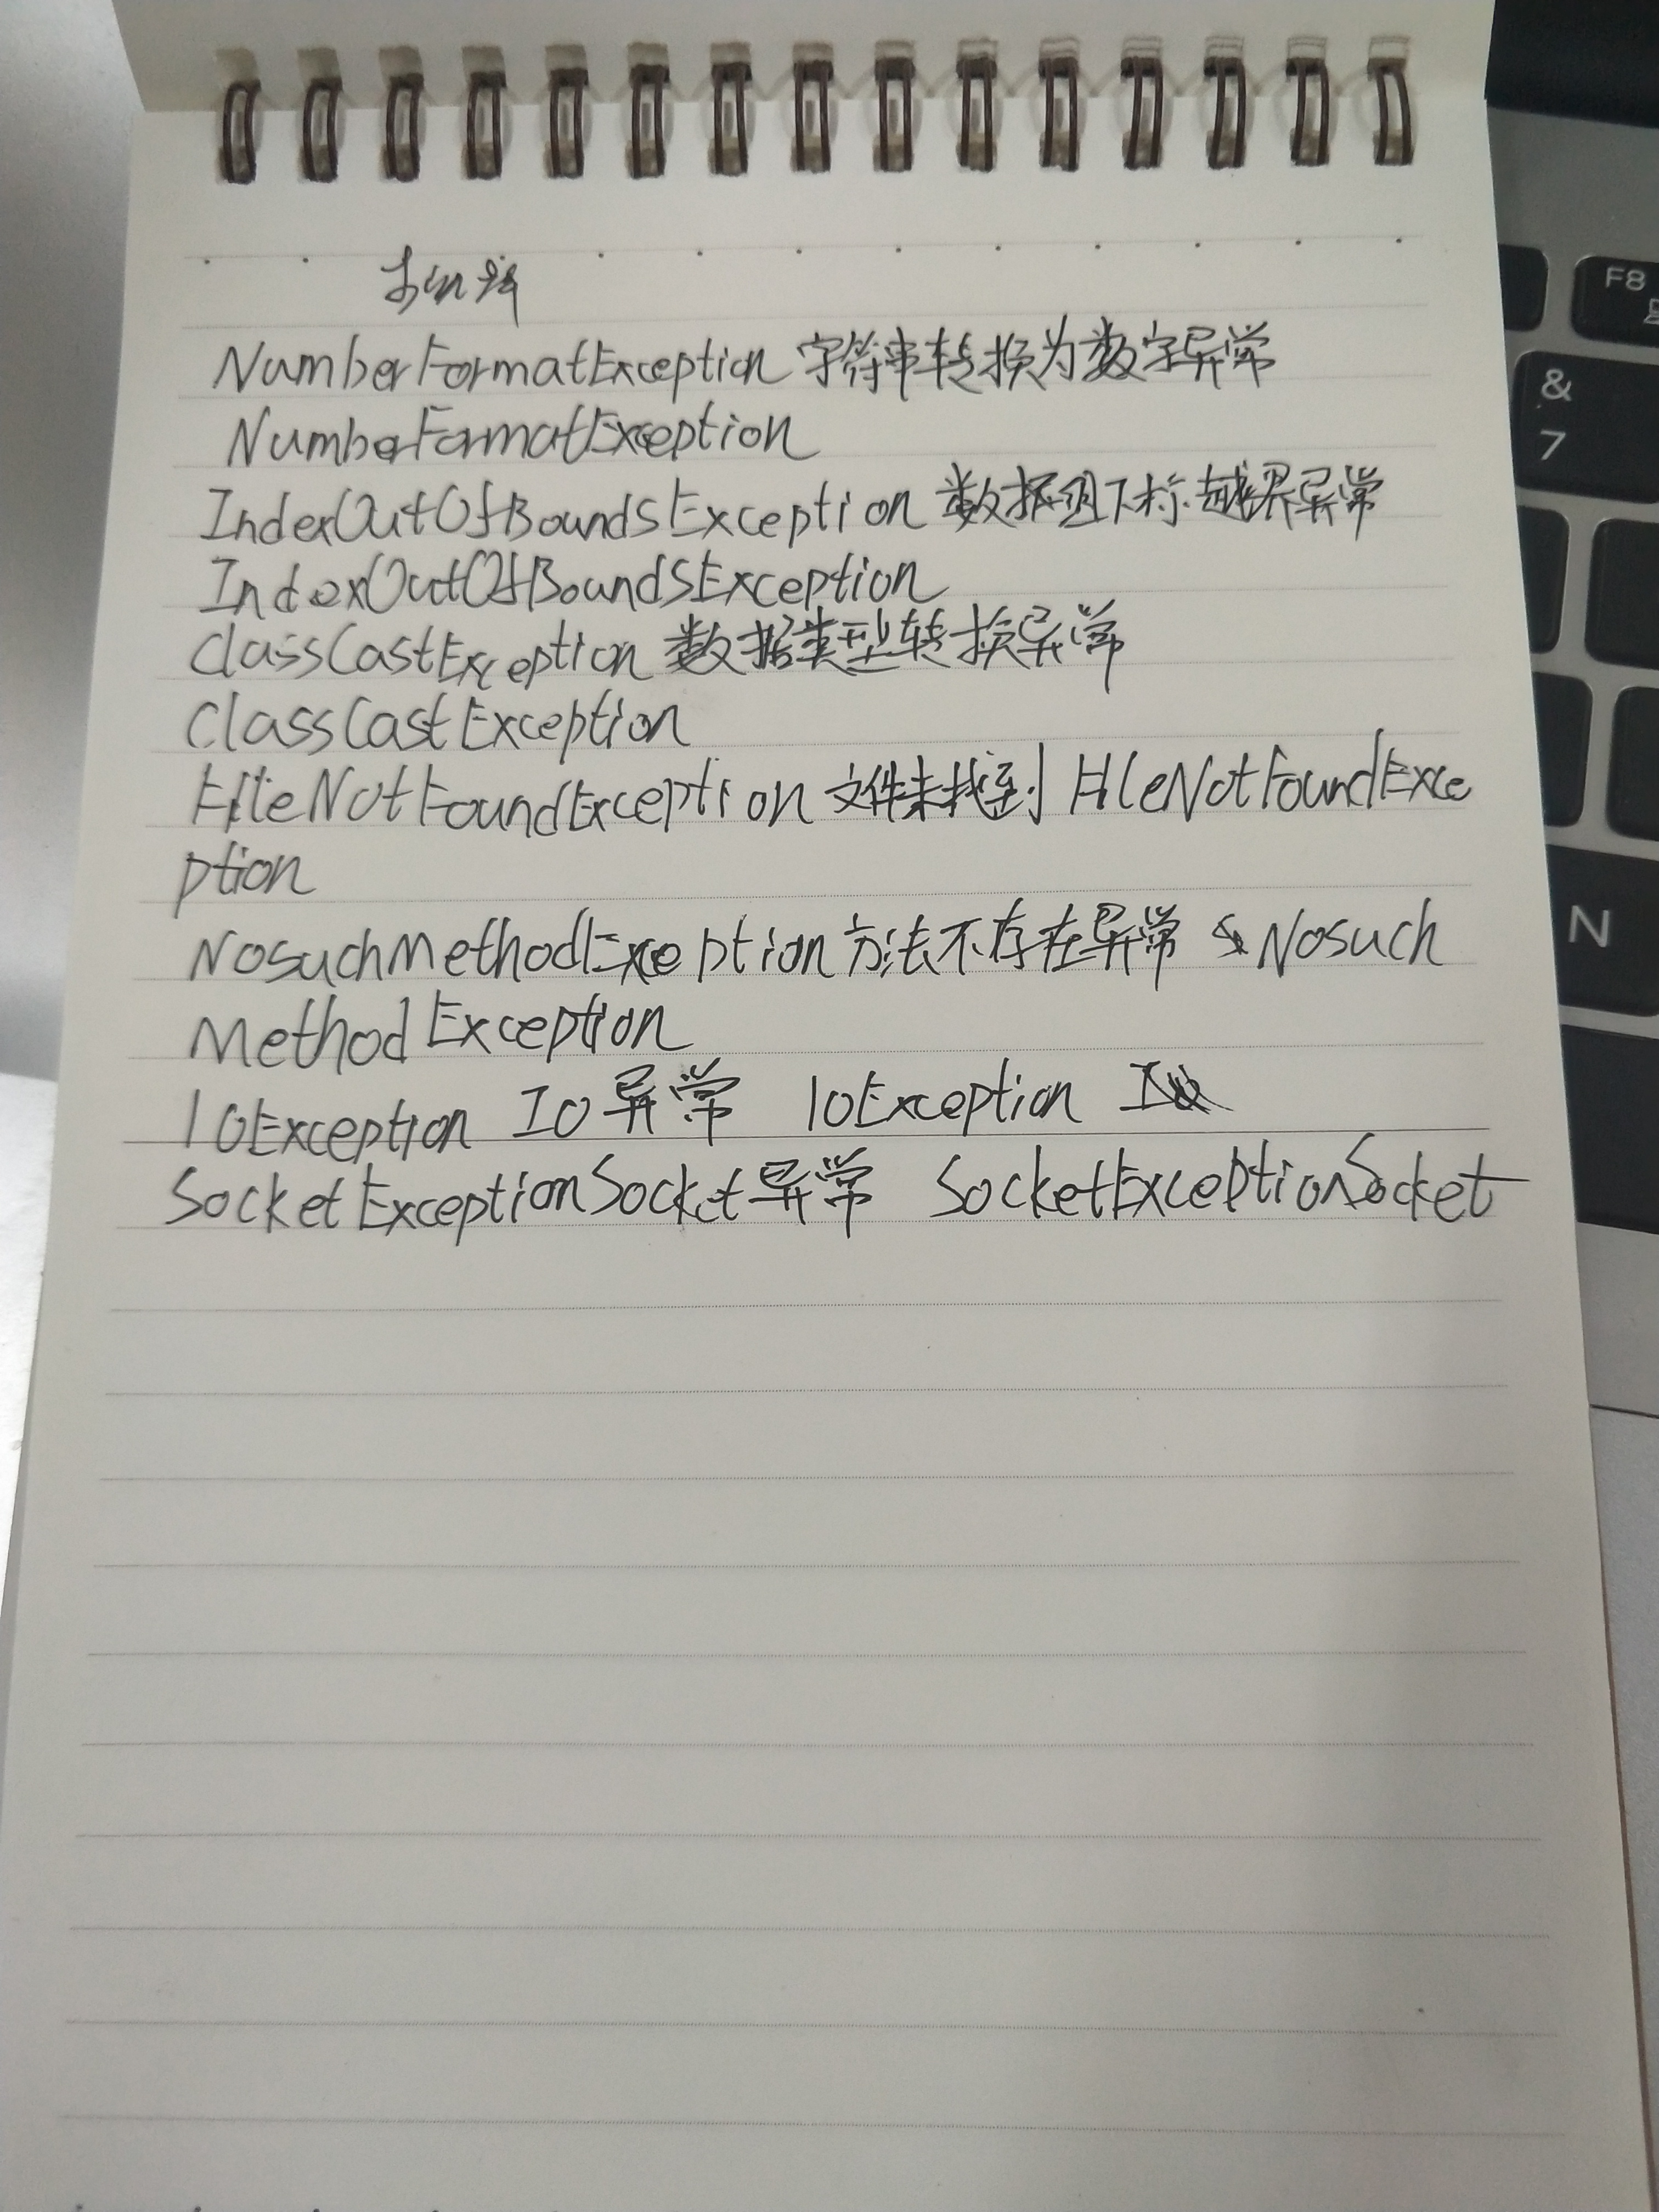 NumberFormatException 字符串转换为数字异常
NumberFormatException
IndexOutOfBoundsException 数组下标越界异常
IndexOutOfBoundsException
ClassCastException 数据类型转换异常
ClassCastException
FileNotFoundException 文件未找到 FileNotFoundExce
ption
NosuchMethodException 方法不存在异常 Nosuch
Method Exception
IOException IO异常 IOException
SocketExceptionSocket异常 SocketExceptionSocket
F8
&
7
N